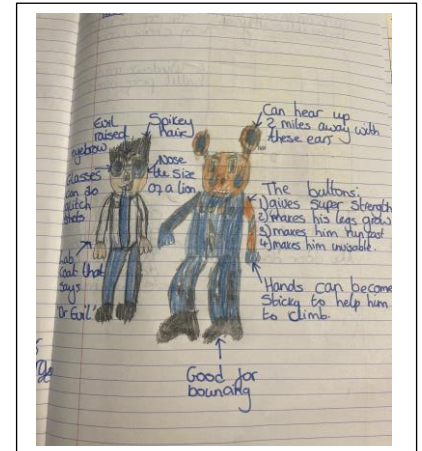 Evil
raised
eyebrow
Spikey
hair
Glasses
can do
glitch
shots
Nose
the size
of a lion
Lab
coat that
says
'Dr Evil'
Can hear up
2 miles away with
these ears
The buttons:
1) gives super strength
2) makes his legs grow
3) makes him run fast
4) makes him invisable.
Hands can become
sticky to help him
to climb.
Good for
bouncing